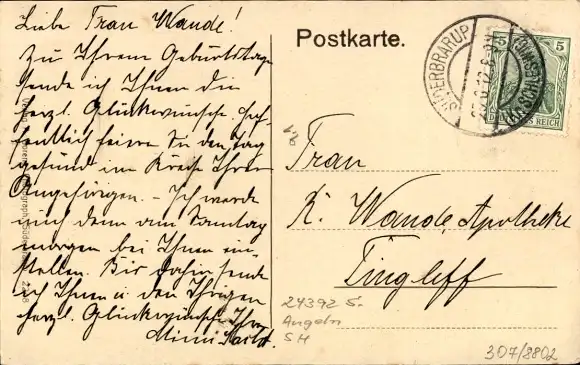 Liebe Frau Wande!
Zu Ihrem Geburtstage
sende ich Ihnen die
herzl. Glückwünsche. Hof-
fentlich feiern Sie den Tag
gesund im Kreise Ihrer
Angehörigen. – Ich werde
mich dann am Sonntag
morgen bei Ihnen ein-
stellen. Bis dahin sende
ich Ihnen u. den Ihrigen
herzl. Glückwünsche Ihre
Mimi
Postkarte.
SÜDERBRARUP
(SCHLESWIG)
5
5
DEUTSCHES REICH
Frau
K. Wande, Apotheke
Tingleff
24392 S.
Angeln
SH
307/8802